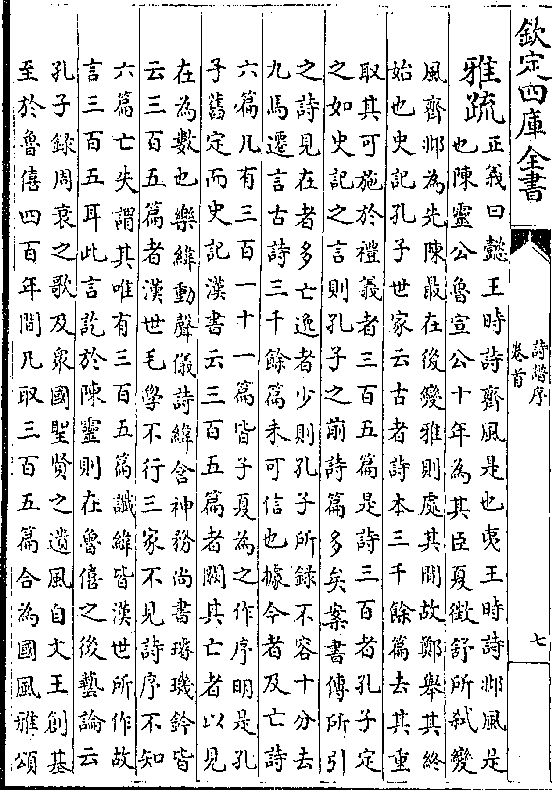 欽定四庫全書
詩譜序
卷首
七
雅疏正義曰懿王時詩齊風是也夷王時詩邶風是
也陳靈公魯宣公十年為其臣夏徵舒所弑變
風齊邶為先陳最在後變雅則處其間故鄭舉其終
始也史記孔子世家云古者詩本三千餘篇去其重
取其可施於禮義者三百五篇是詩三百者孔子定
之如史記之言則孔子之前詩篇多矣案書傳所引
之詩見在者多亡逸者少則孔子所錄不容十分去
九馬遷言古詩三千餘篇未可信也據今者及亡詩
六篇凡有三百一十一篇皆子夏為之作序明是孔
子舊定而史記漢書云三百五篇者闕其亡者以見
在為數也樂緯動聲儀詩緯含神務尚書璿璣鈐皆
云三百五篇者漢世毛學不行三家不見詩序不知
六篇亡失謂其唯有三百五篇讖緯皆漢世所作故
言三百五耳此言訖於陳靈則在魯僖之後藝論云
孔子錄周衰之歌及衆國聖賢之遺風自文王創基
至於魯僖四百年間凡取三百五篇合為國風雅頌